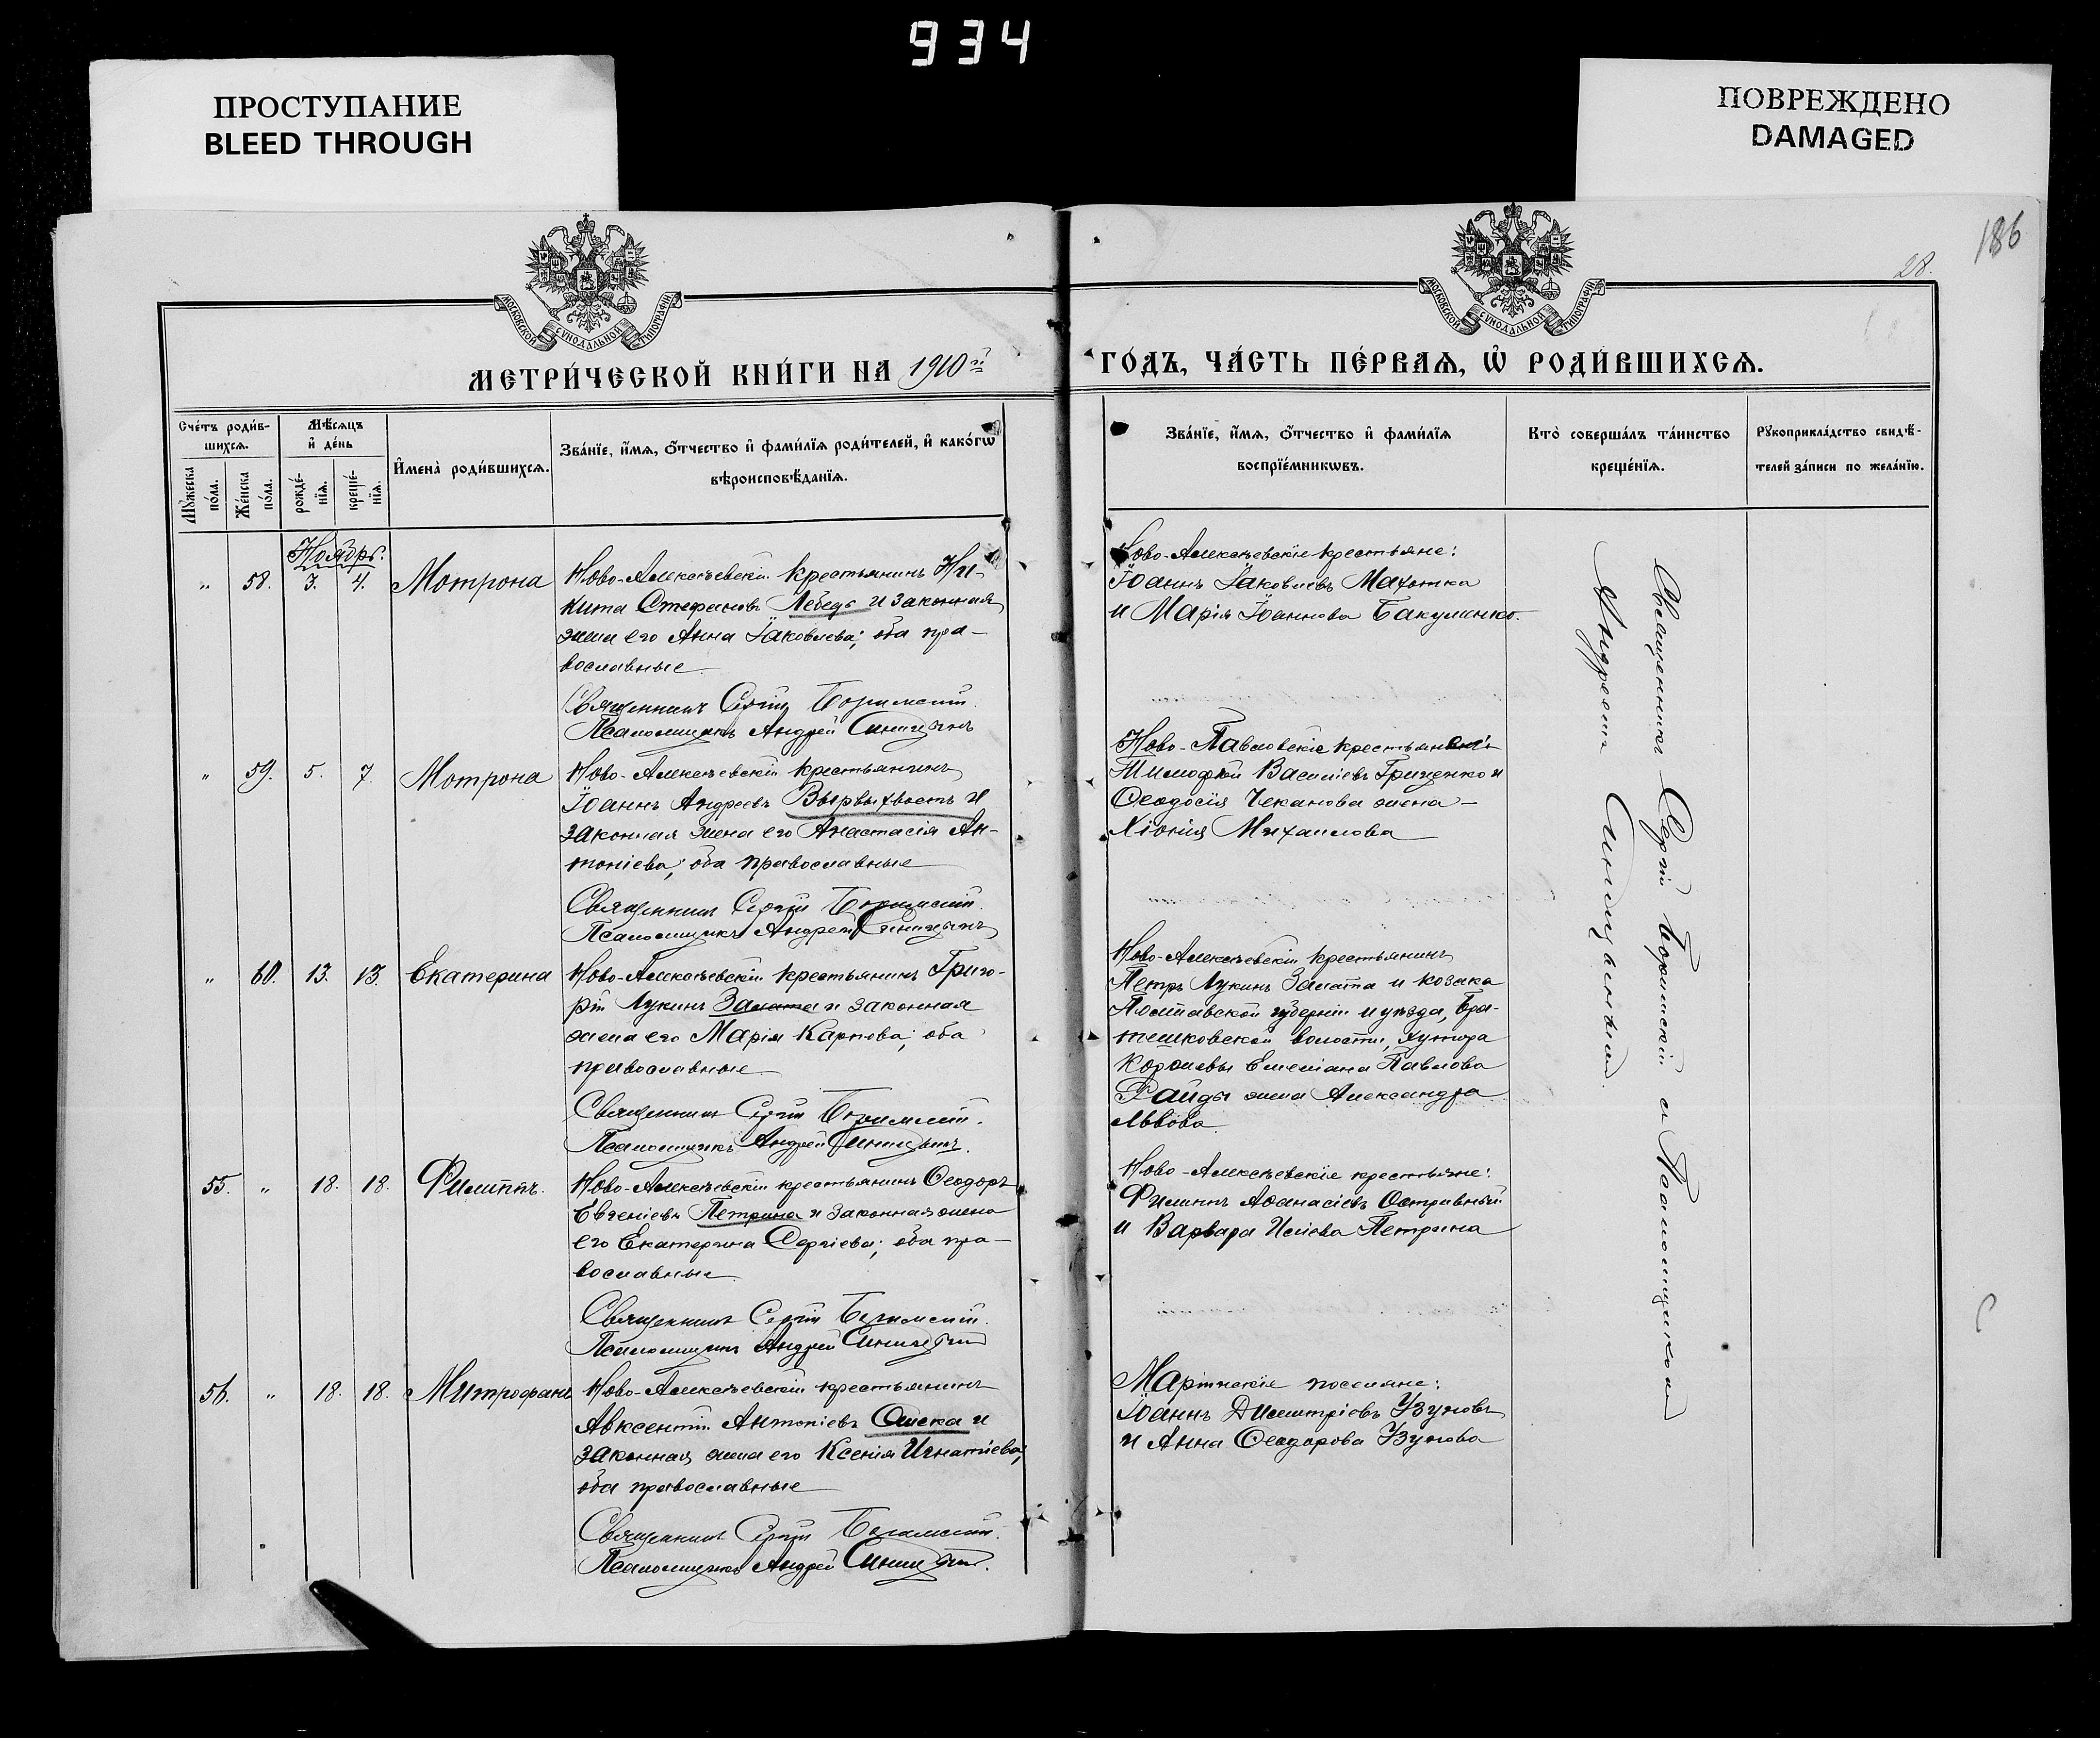 934
ПРОСТУПАНИЕ
BLEED THROUGH
ПОВРЕЖДЕНО
DAMAGED
186
28.
МОСКОВСКОЙ СѴНОДАЛЬНОЙ ТИПОГРАФІИ
МОСКОВСКОЙ СѴНОДАЛЬНОЙ ТИПОГРАФІИ
МЕТРИ́ЧЕСКОЙ КНИ́ГИ НА 1910й
ГО́ДЪ, ЧА́СТЬ ПЕ́РВАѦ, Ѡ҆ РОДИ́ВШИХСѦ.
Сче́тъ роди́в-
шихсѧ.
Мꙋ́жеска по́ла.
Же́нска по́ла.
Мѣ́сѧцъ
и҆ де́нь
рожде́-нїѧ.
креще́-нїѧ.
И҆мена̀ роди́вшихсѧ.
Зва́нїе, и҆́мѧ, ѻ҆́тчество и҆ фами́лїѧ роди́телей, и҆ како́гѡ
вѣроисповѣ́данїѧ.
Зва́нїе, и҆́мѧ, ѻ҆́тчество и҆ фами́лїѧ
воспрїе́мникѡвъ.
Кто̀ соверша́лъ та́инство
креще́нїѧ.
Рꙋкоприкла́дство свидѣ́-
телей за́писи по жела́нїю.
Ноябрь.
„ 58. 3. 4. Мотрона
Ново-Алексѣевскій крестьянинъ Ни-
кита Стефановъ Лебедь и законная
жена его Анна Іаковлева; оба пра-
вославные
Священникъ Сергій
Псаломщикъ Андрей Синицынъ
Ново-Алексѣевскіе крестьяне:
Іоаннъ Іаковлевъ Махотка
и Марія Іоаннова Бакуменко.
„ 59. 5. 7. Мотрона
Ново-Алексѣевскій крестьянинъ
Іоаннъ Андреевъ Вырвыхвостъ и
законная жена его Анастасія Ан-
тоніева; оба православные
Священникъ Сергій
Псаломщикъ Андрей Синицынъ
Ново-Павловскіе
Тимофей Василіевъ Гриценко и
Ѳеодосія Чеканова жена
Хіонія Михаилова
„ 60. 13. 13. Екатерина
Ново-Алексѣевскій крестьянинъ Григо-
рій Лукинъ Залата и законная
жена его Марія Карпова; оба
православные
Священникъ Сергій
Псаломщикъ Андрей Синицынъ.
Ново-Алексѣевскій крестьянинъ
Петръ Лукинъ Залата и козака
Полтавской губерніи и уѣзда, Бра-
тешковской волости, хутора
Емеліана Павлова
Райды жена Александра
Львова.
55. „ 18. 18. Филиппъ.
Ново-Алексѣевскій крестьянинъ Ѳеодоръ
Евгеніевъ Петрина и законная жена
его Екатерина Сергіева; оба пра-
вославные
Священникъ Сергій
Псаломщикъ Андрей Синицынъ
Ново-Алексѣевскіе крестьяне:
Филиппъ Аѳанасіевъ Остривный
и Варвара Исаева Петрина
56. „ 18. 18. Митрофанъ
Ново-Алексѣевскій крестьянинъ
Авксентій Антоніевъ Олека и
законная жена его Ксенія Игнатіева;
оба православные
Священникъ Сергій
Псаломщикъ Андрей Синицынъ.
Маріинскіе поселяне:
Іоаннъ Димитріевъ Узуновъ
и Анна Ѳеодорова Узунова
Священникъ Сергій и Псаломщикомъ
Андреемъ Синицынымъ.